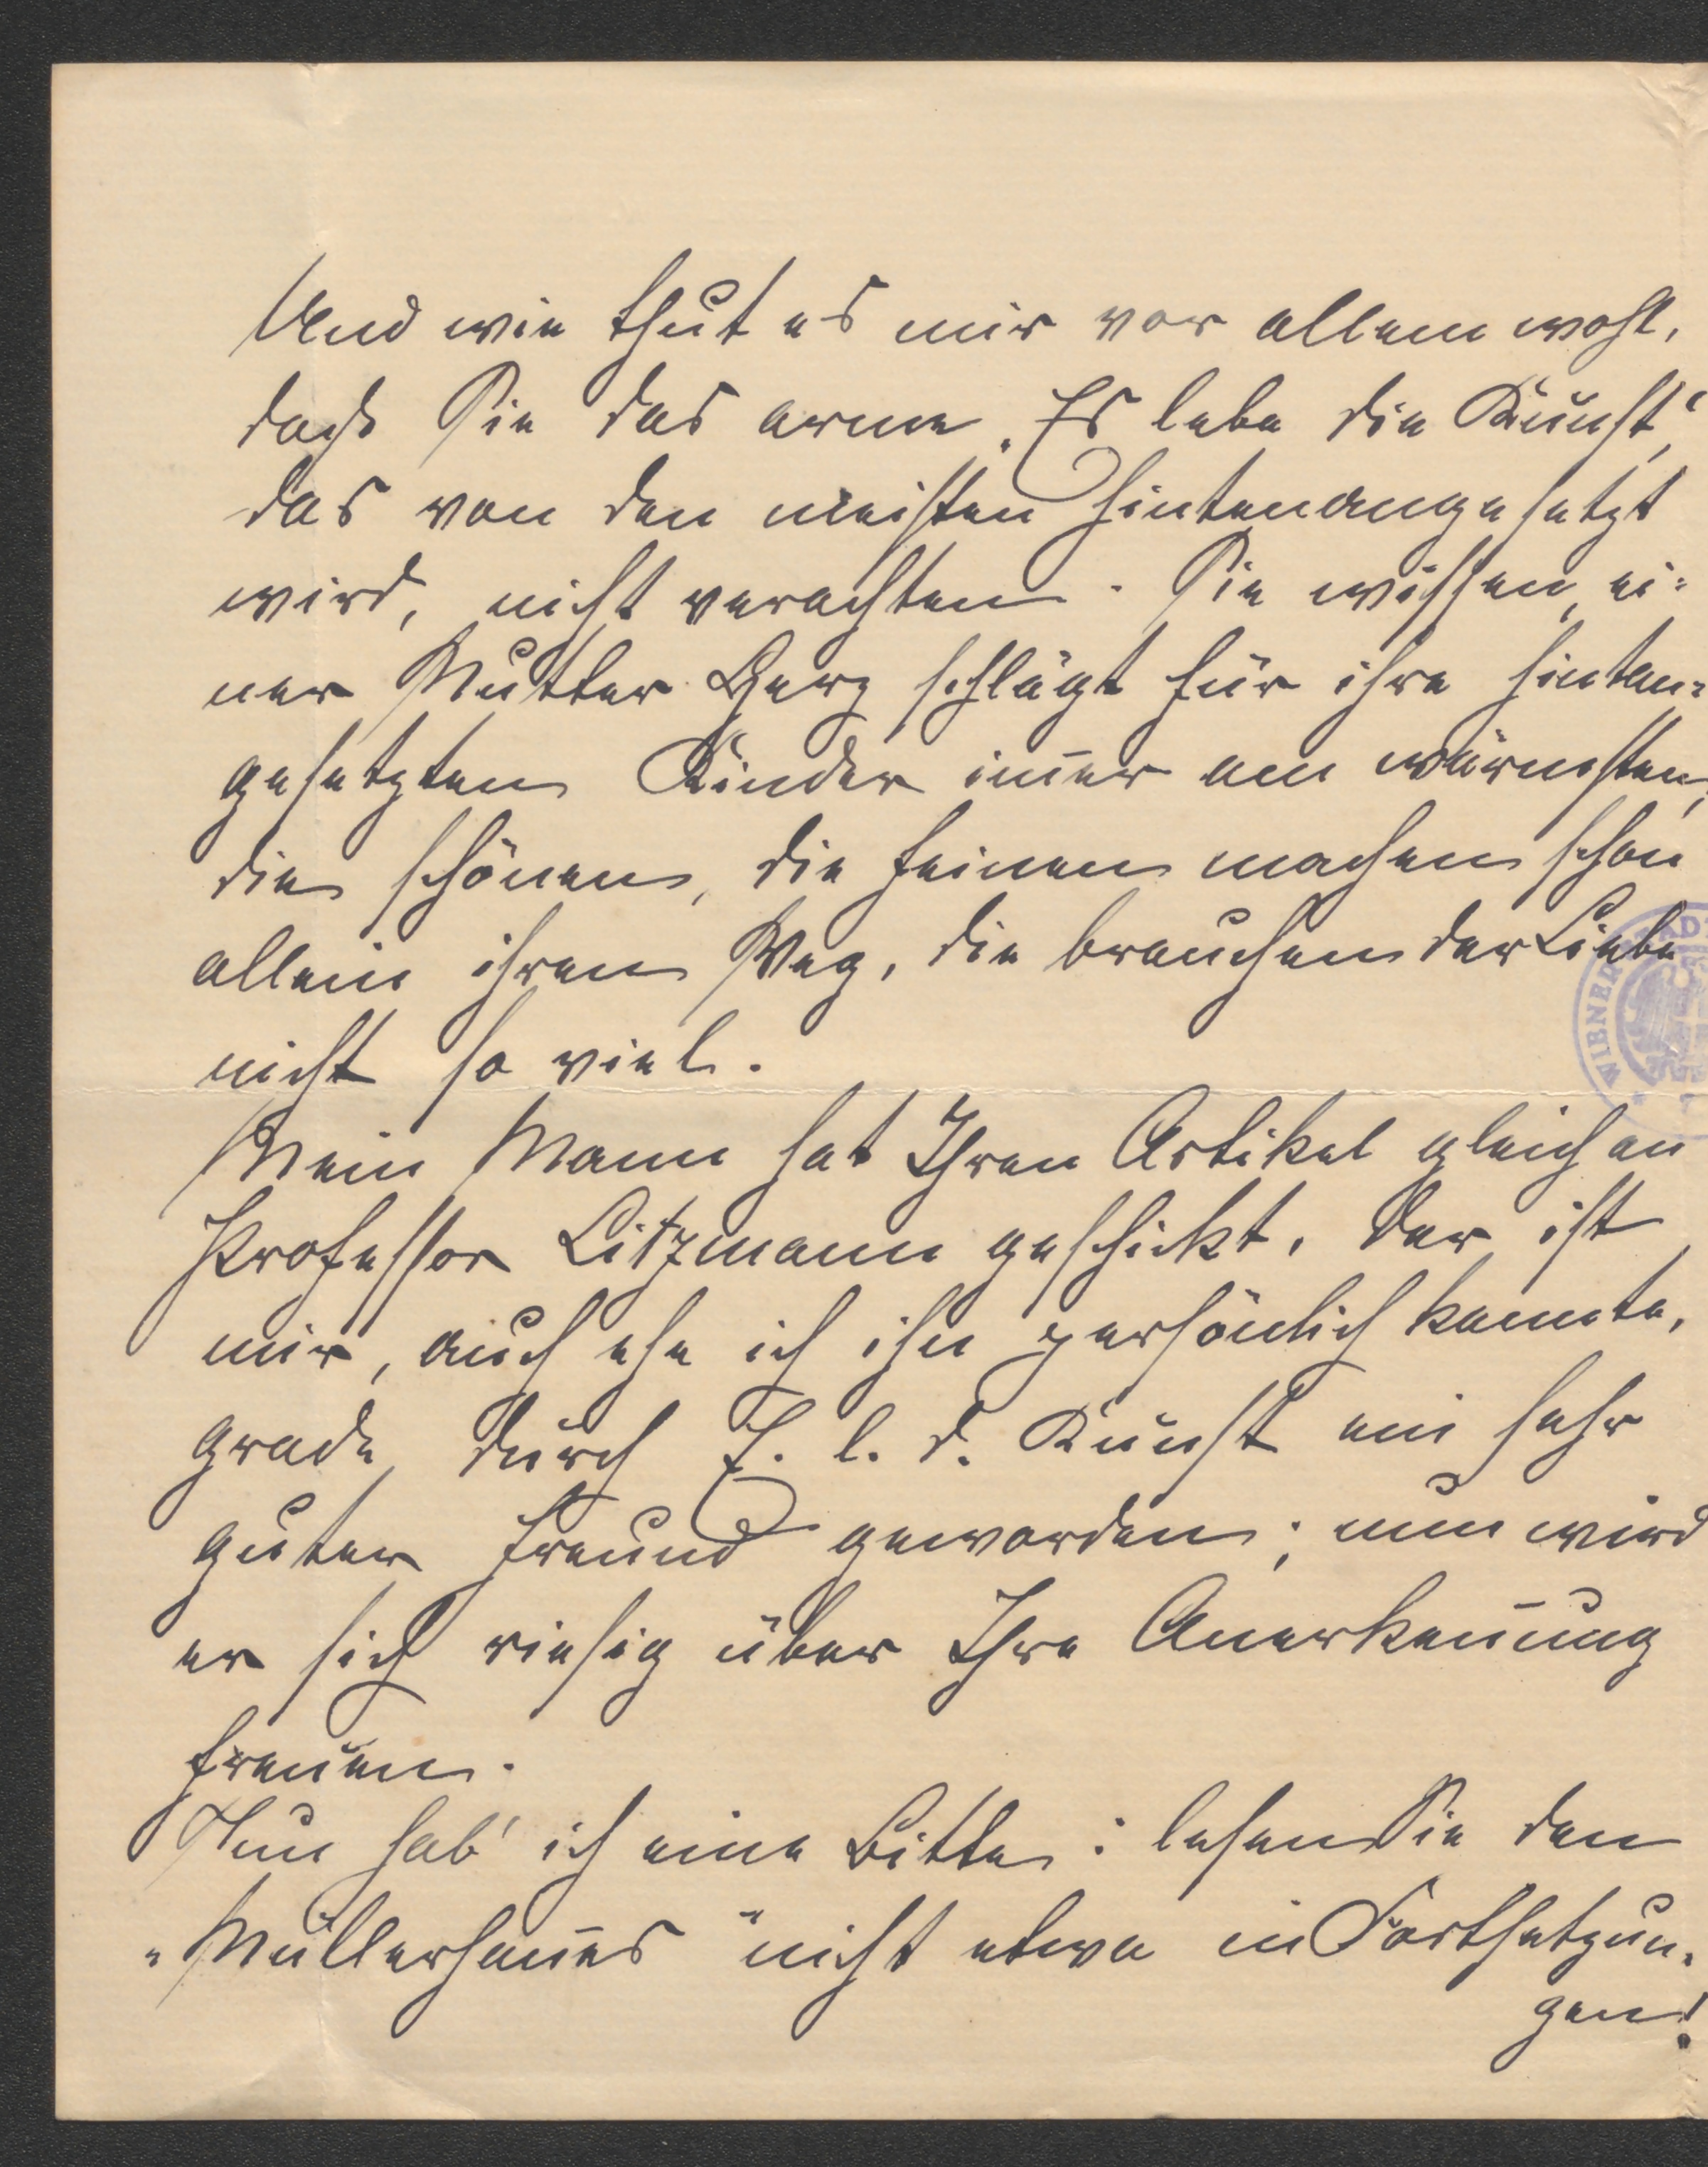 Und wie thut es mir vor allem wohl,
daß Sie das arme „Es lebe die Kunst“,
das von den meisten hintenangesetzt
wird, nicht verachten. Sie wissen, ei=
ner Mutter Herz schlägt für ihre hintan=
gesetzten Kinder im̅er am wärmsten,
die schönen, die feinen machen schon
allein ihren Weg, die brauchen der Liebe
nicht so viel.
Mein Mann hat Ihren Artikel gleich an
Professor Litzmann geschickt, der ist
mir, auch ehe ich ihn persönlich kannte,
grade durch E. l. d. Kunst ein sehr
guter Freund geworden; nun wird
er sich riesig über Ihre Anerken̅ung
freuen.
Nun hab' ich eine Bitte: lesen Sie den
„Müllerhannes“ nicht etwa in Fortsetzun=
gen!
WIENER STADT